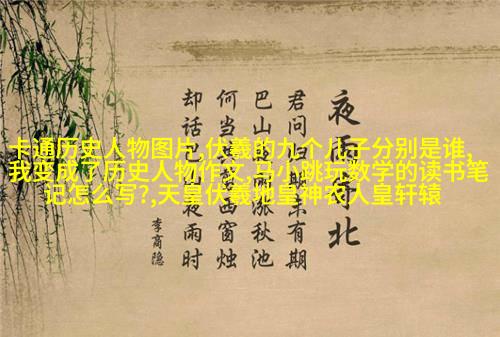 卡通历史人物图片,伏羲的九个儿子分别是谁,
我变成了历史人物作文,马小跳玩数学的读书笔
记怎么写?,天皇伏羲地皇神农人皇轩辕
夜雨北
君问归未有期
巴山涨秋池
何当西窗烛
却话夜雨时
李商隐